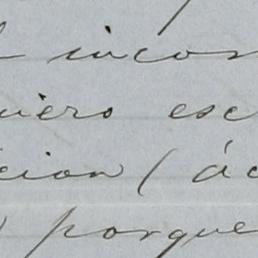 incon
uiero esc
cion (ác
) porque